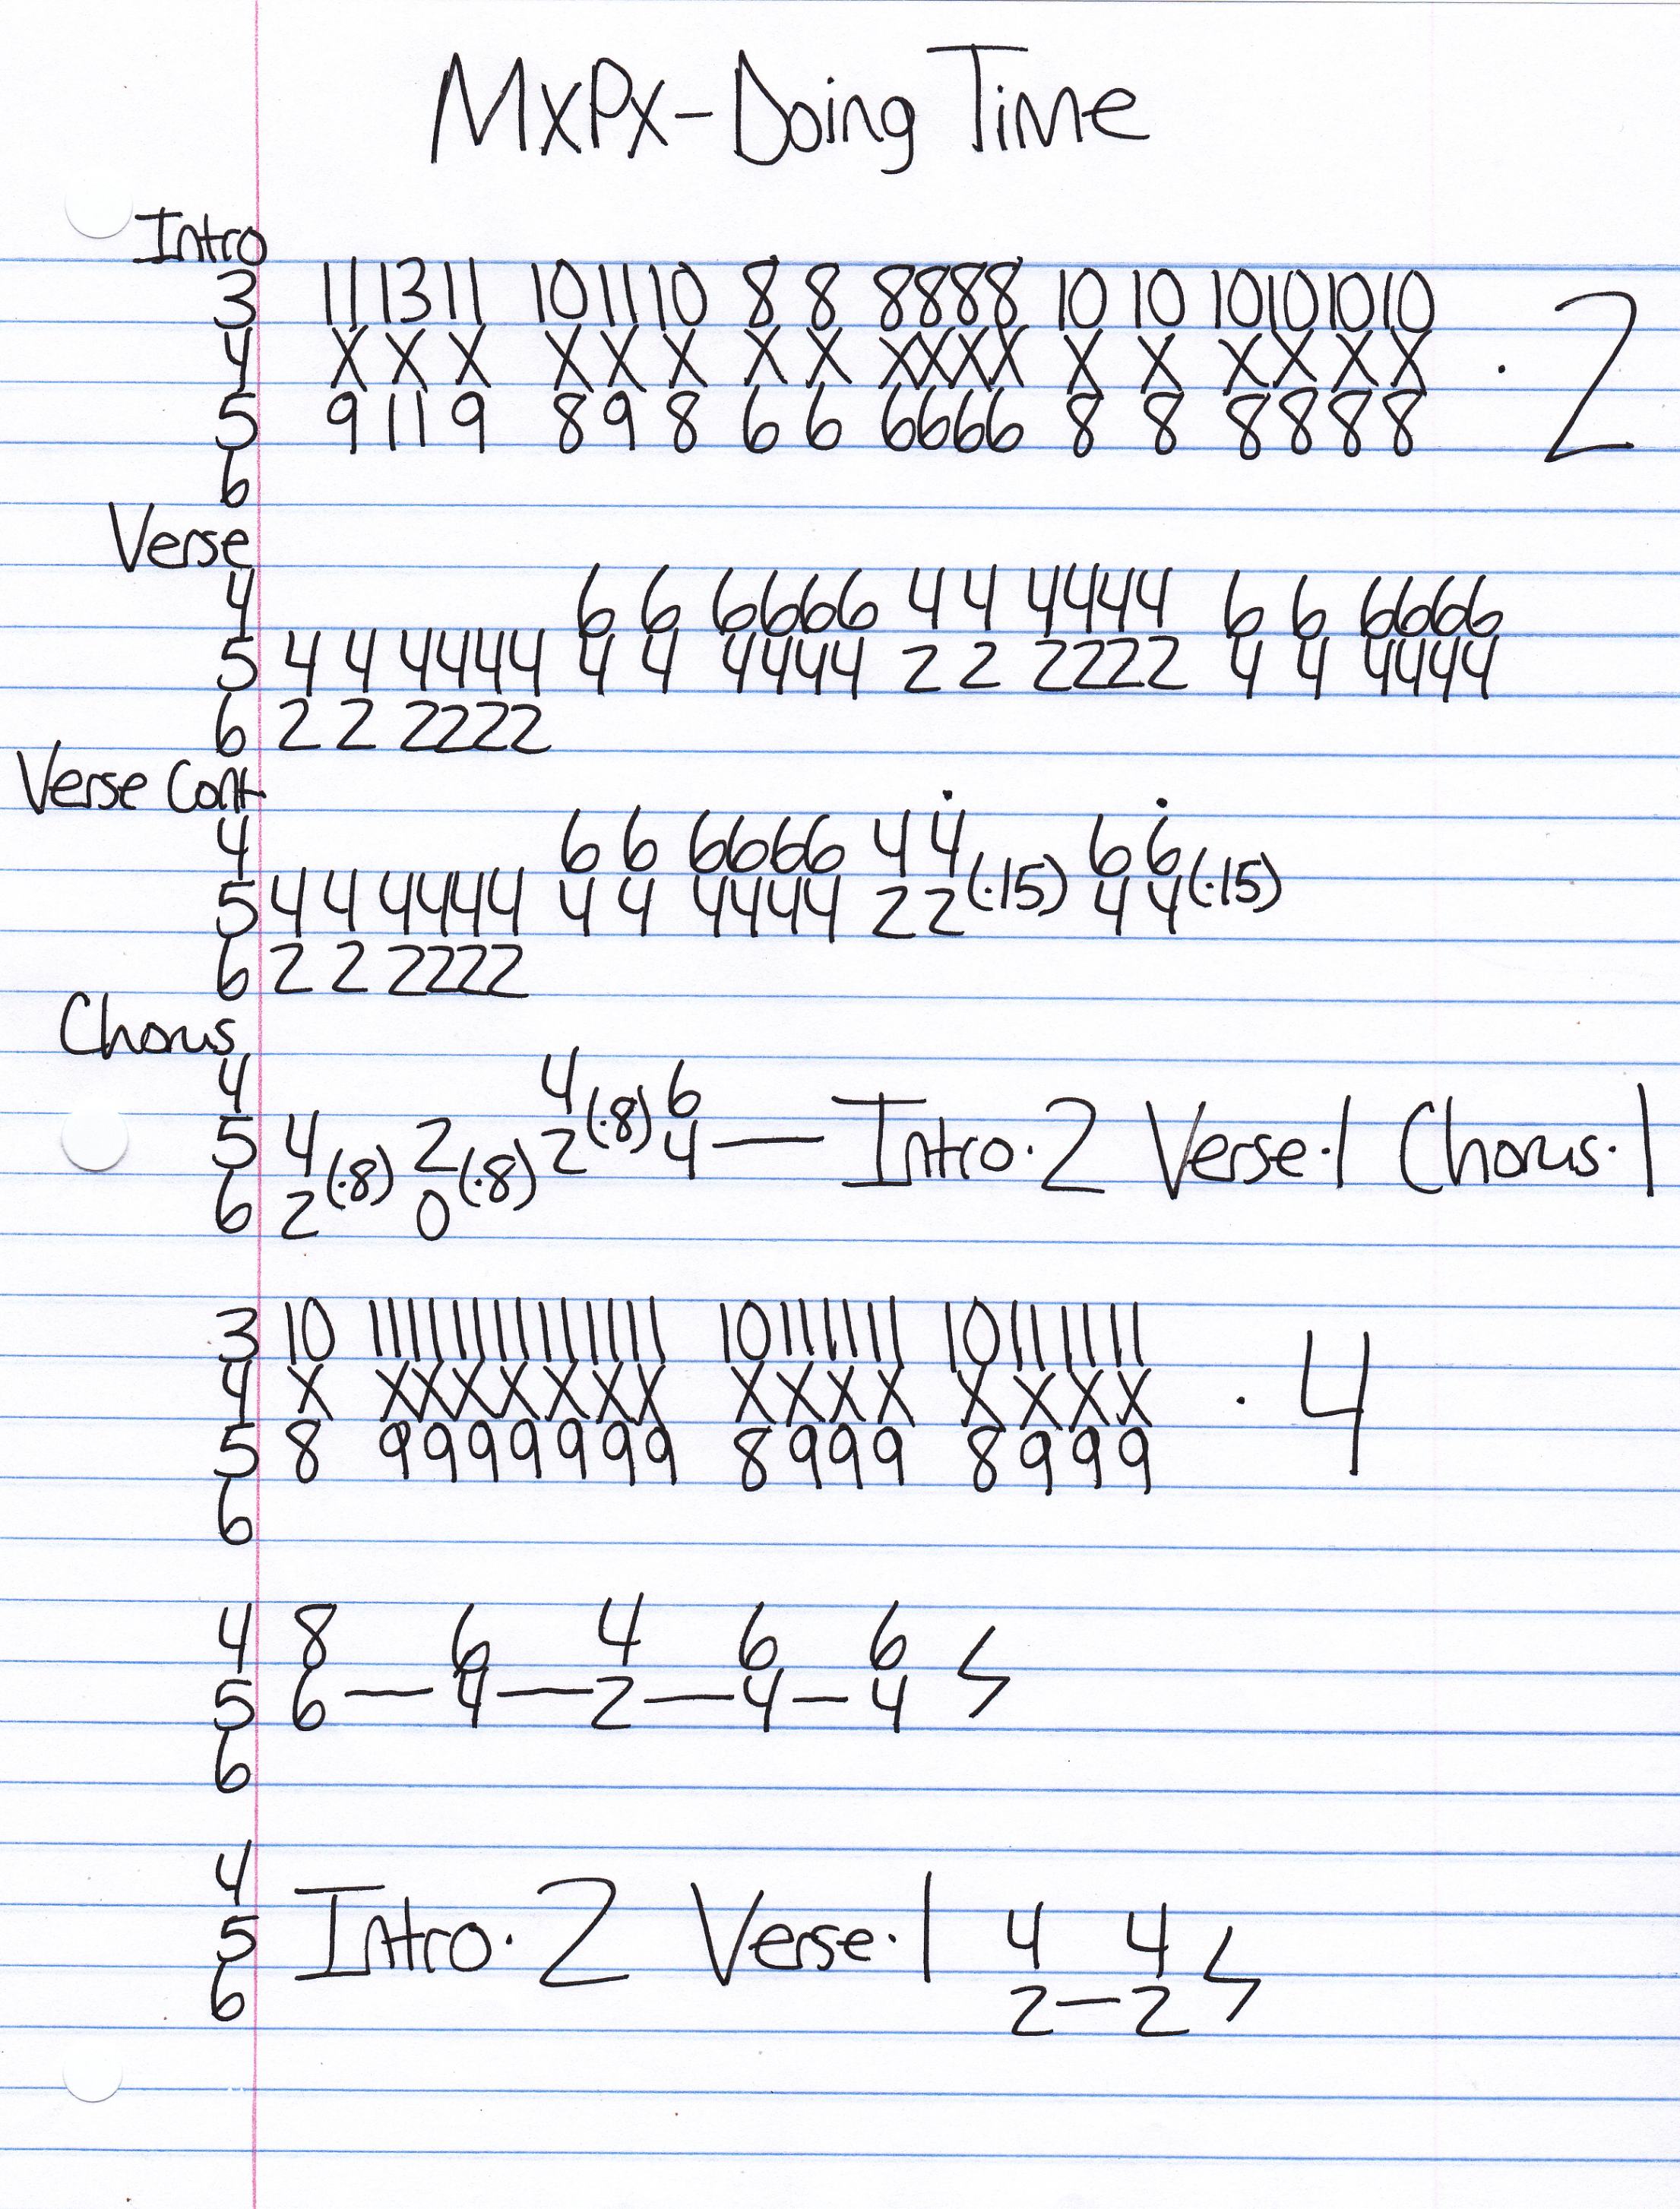 MxPx-Doing Time
Intro
3 11 13 11 10 11 10 8 8 8888 10 10 10101010
4 X X X X X X X X XXXX X X X X X X · 2
5 9 11 9 8 9 8 6 6 6666 8 8 8888
6
Verse
4 6 6 6666 4 4 4444 6 6 6666
5 4 4 4444 4 4 4444 2 2 2222 4 4 4444
6 2 2 2222
Verse Cont
4 6 6 6666 4 4 6 6
5 4 4 4444 4 4 4444 2 2(·15) 4 4(·15)
6 2 2 2222
Chorus
4 4 6
5 4 2 2(·8) 4 — Intro·2 Verse·1 Chorus·1
6 2(·8) 0(·8)
3 10 11111111111111 10111111 10111111
4 X XXXXXXX XXXX XXXX · 4
5 8 9999999 8999 8999
6
4 8 6 4 6 6
5 6 — 4 — 2 — 4 — 4
6
4
5 Intro·2 Verse·1 4 4
6 2 — 2